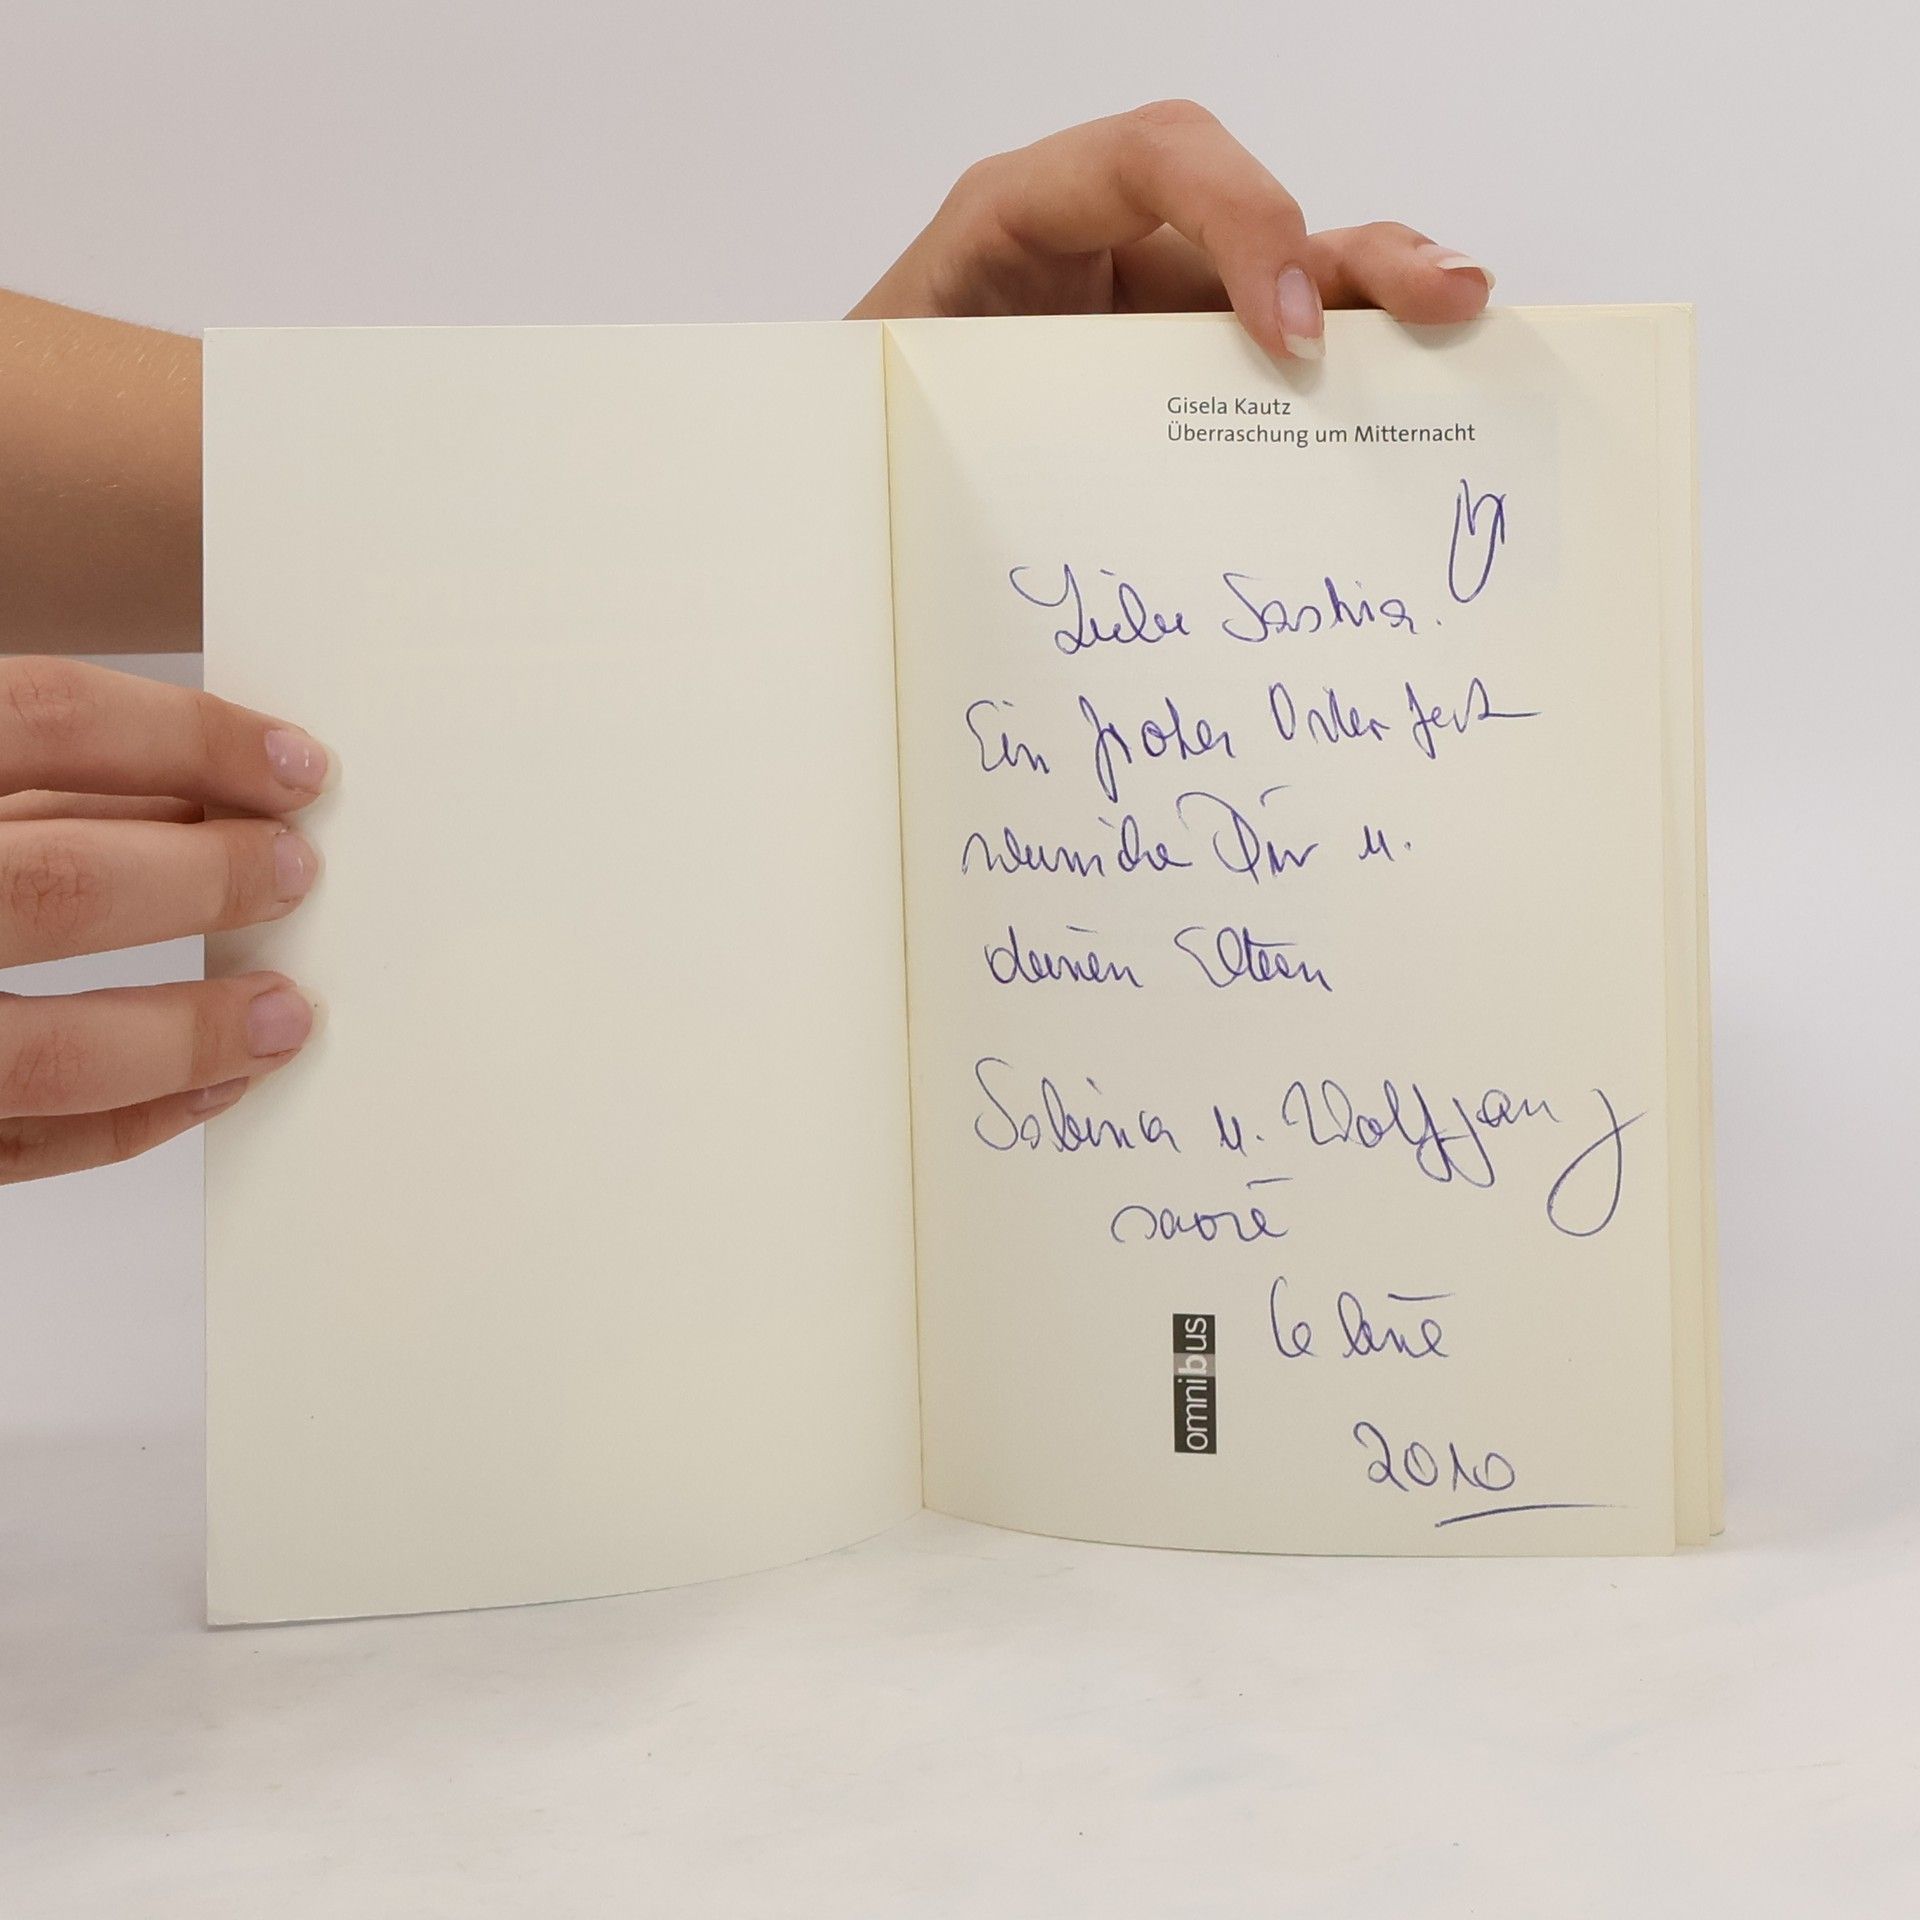 Gisela Kautz
Überraschung um Mitternacht
Liebe Saskia.
Ein frohes Osterfest
wünsche Dir u.
deinen Eltern
Sabina u. Wolfgang
2010
omnibus